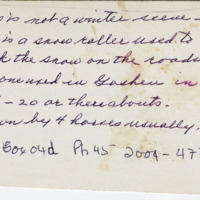 is is not a winter scene -
is a snow roller used to
k the snow on the roads
one used in Goshen in
- 20 or thereabouts.
wn by 4 horses usually.
Box 04d Ph 45 2004-47